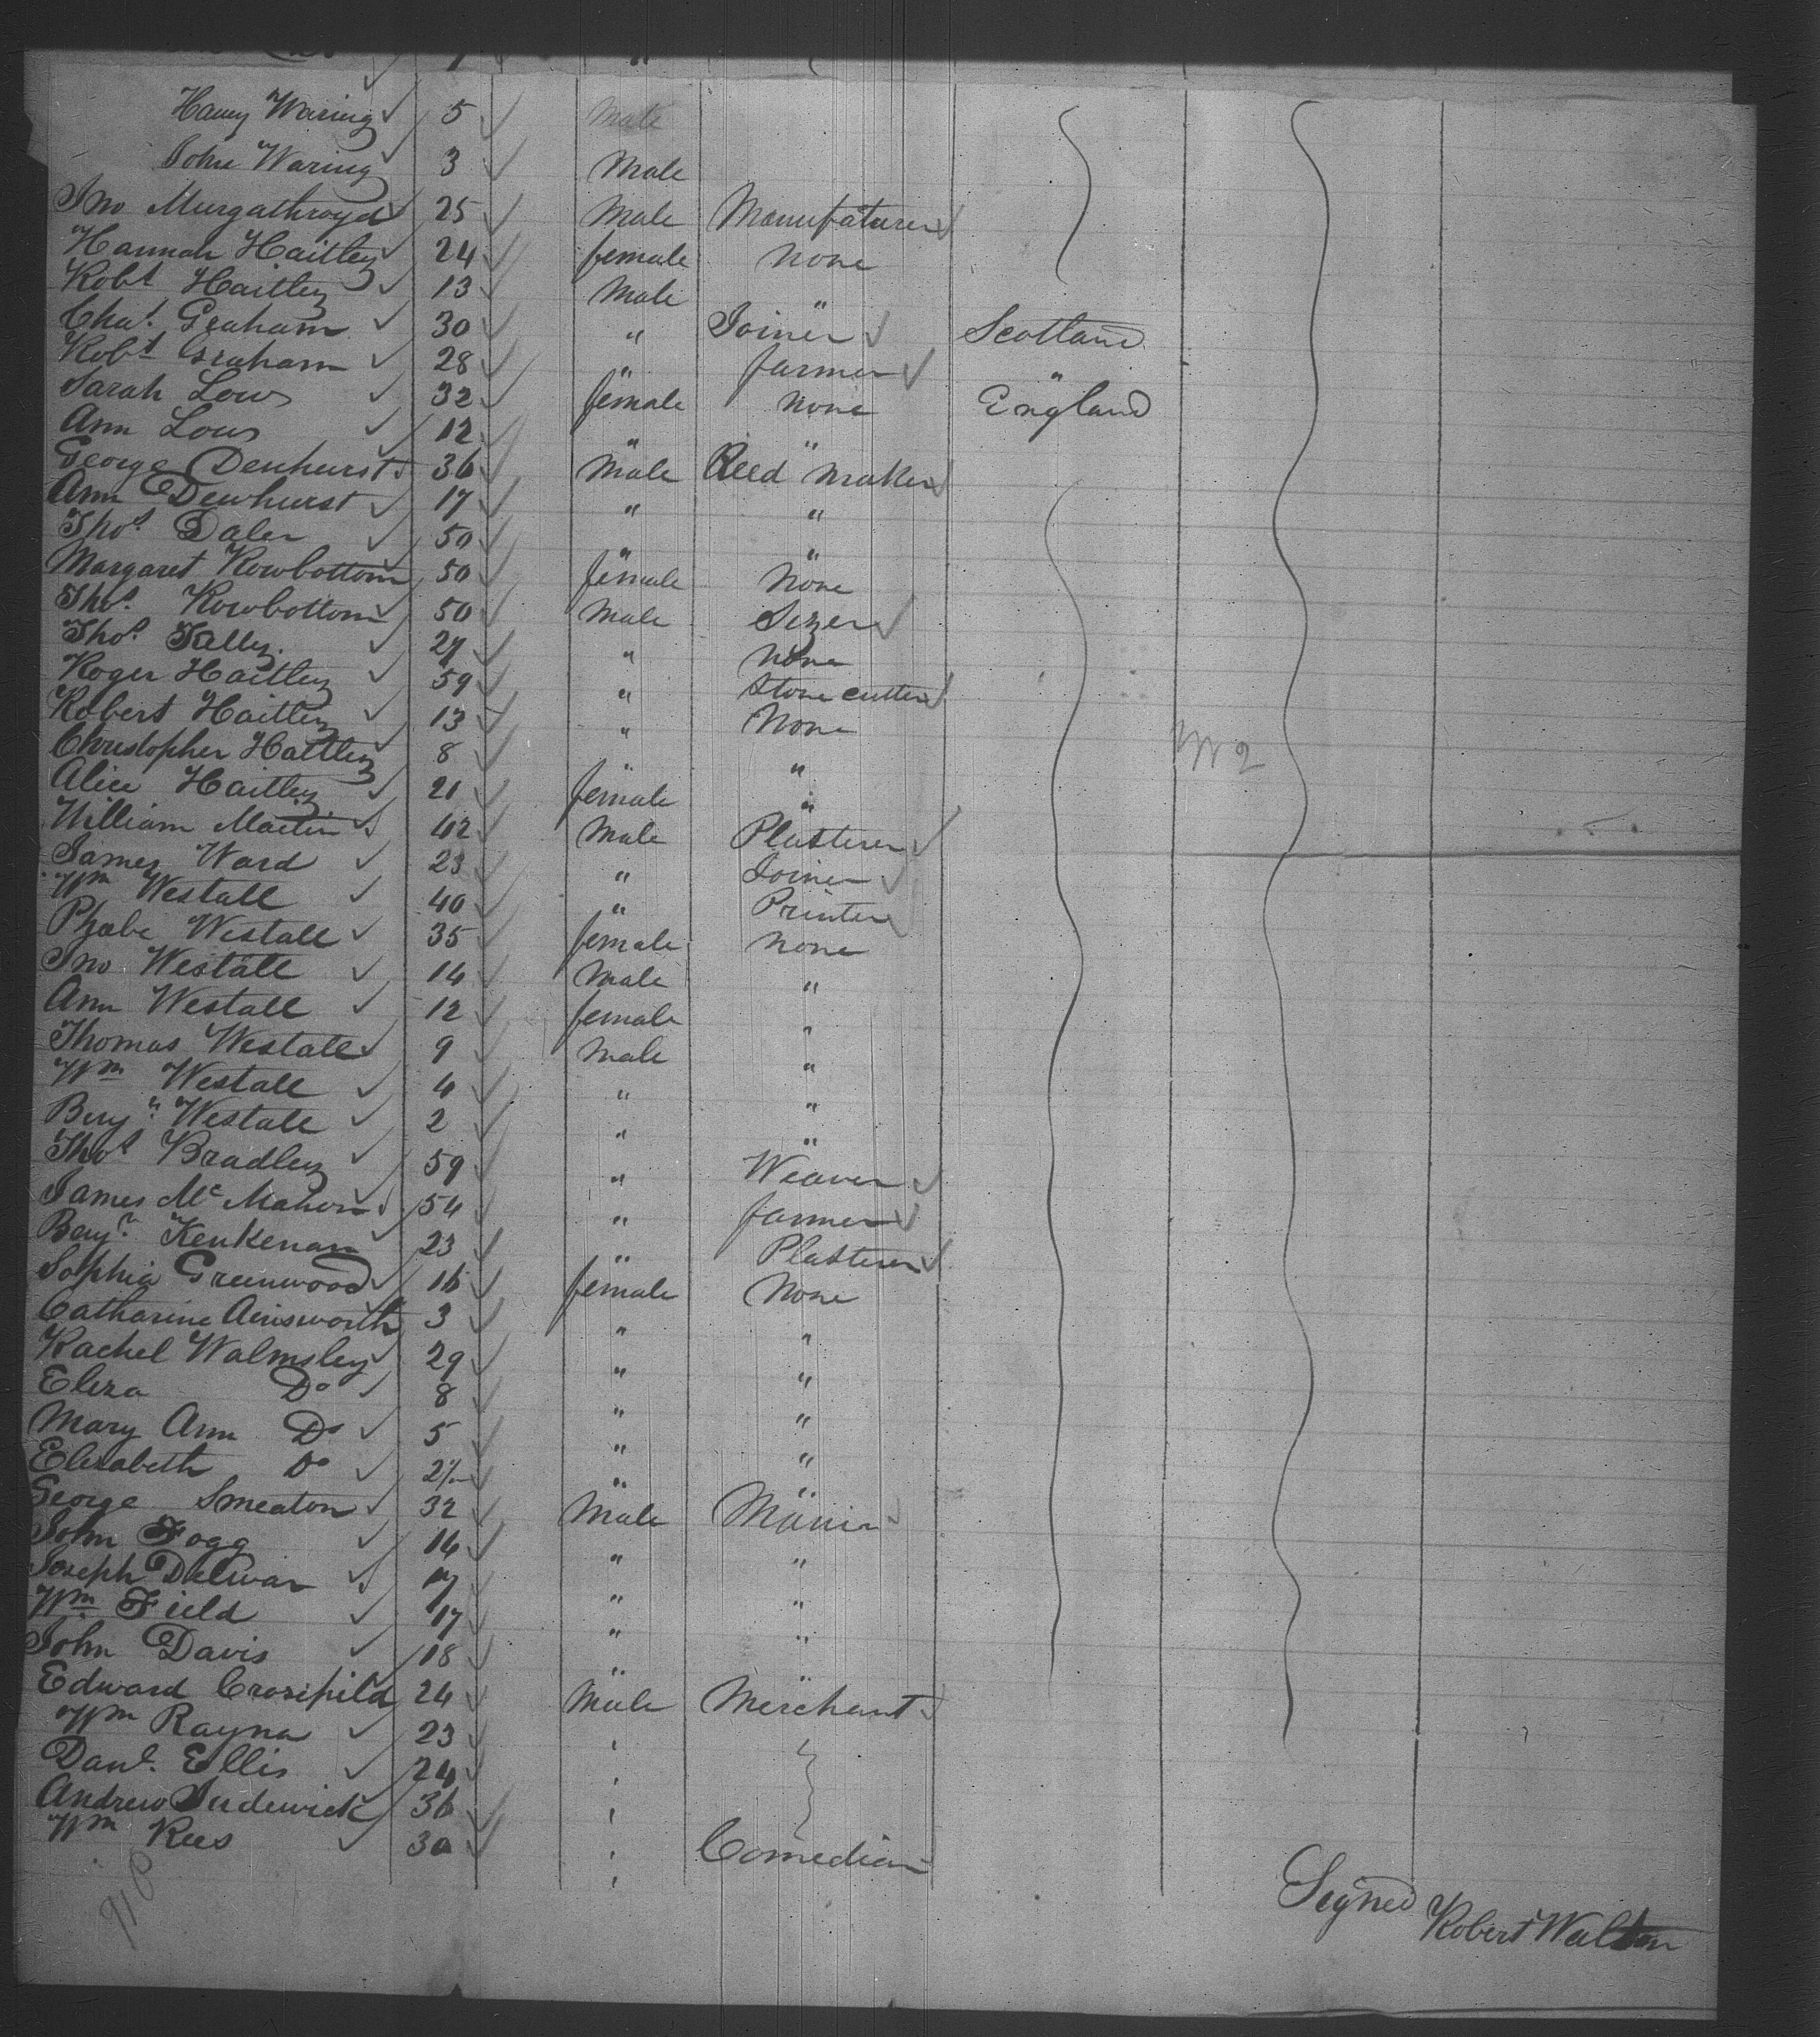 Harry Waring 5 Male
John Waring 3 Male
Jno Murgathroyd 25 Male Manufaturer
Hannah Haitley 24 female None
Robt Haitley 13 Male "
Chas. Graham 30 " Joiner Scotland
Robt Graham 28 " farmer "
Sarah Lows 32 female none England
Ann Lows 12 " "
George Denhurst 36 Male Reed maker
Ann Dewhurst 17 " "
Thos. Daler 50 " "
Margaret Rowbottom 50 female None
Thos. Rowbottom 50 Male Sizer
Thos. Kelly 27 " None
Roger Haitley 59 " Stone cutter
Robert Haitley 13 " None
Christopher Haitley 8 " "
Alice Haitley 21 female "
William Martin 42 Male Plasterer
James Ward 23 " Joiner
Wm Westall 40 " Printer
Phœbe Westall 35 female none
Jno Westall 14 Male "
Ann Westall 12 female "
Thomas Westall 9 Male "
Wm Westall 4 " "
Benjn. Westall 2 " "
Thos Bradley 59 " Weaver
James McMahon 54 " farmer
Benjn. Kenkenan 23 " Plasterer
Sophia Greenwood 16 female None
Catharine Ainsworth 3 " "
Rachel Walmsley 29 " "
Eliza Do 8 " "
Mary Ann Do 5 " "
Elizabeth Do 2 " "
George Smeaton 32 Male
John Fogg 14 " "
Joseph 17 " "
Wm Field 17 " "
John Davis 18 "
Edward Crosfield 24 Male Merchant
Wm Rayner 23 "
Danl. Ellis 24 "
Andrew 36 "
Wm Rees 30 " Comedian
Signed Robert Walton